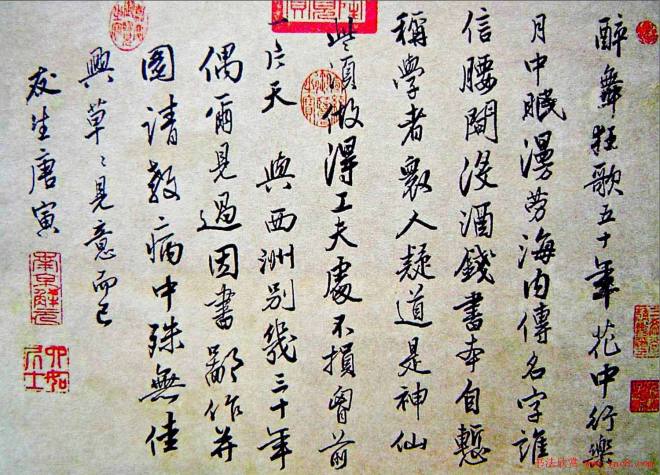 醉舞狂歌五十年花中行樂
月中眠漫勞海内傳名字誰
信腰間沒酒錢書本自慙
稱學者衆人疑道是神仙
些須做得工夫處不損胷前
一片天 與西洲别幾三十年
偶爾見過因書鄙作并
圖請教病中殊無佳
興草〻見意而已
友生唐寅
南京解元
六如居士
书法欣赏